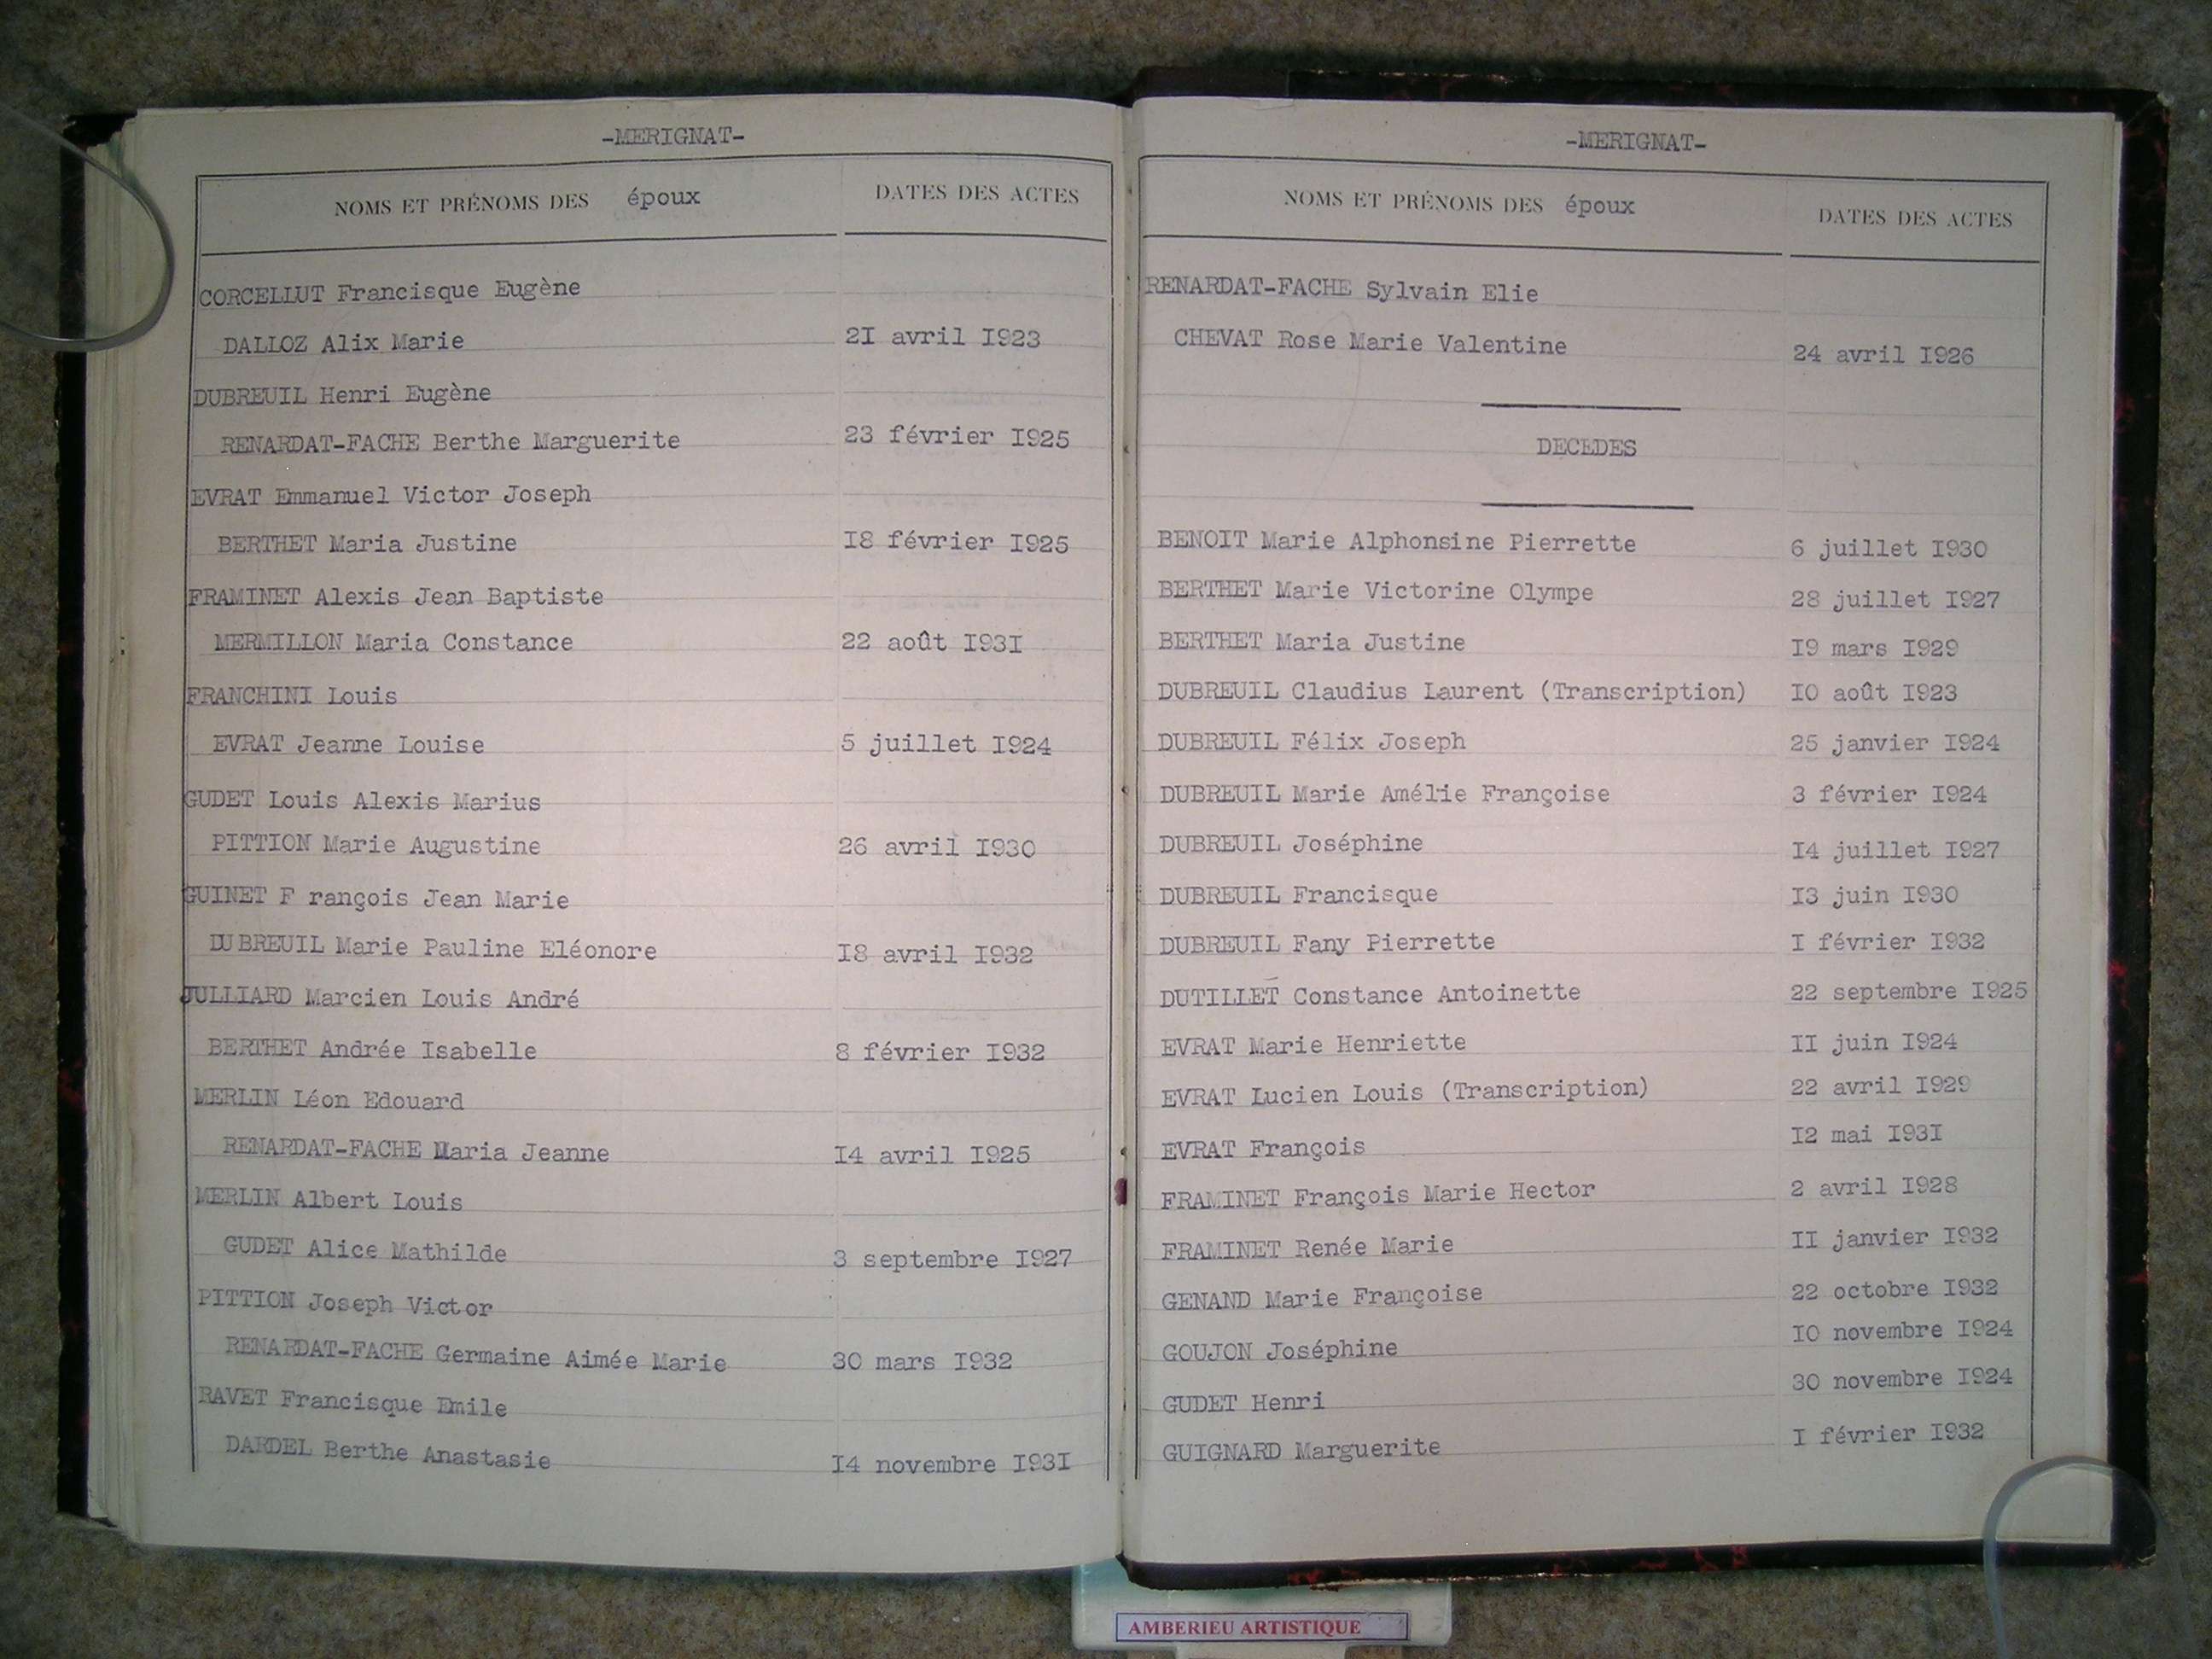 -MERIGNAT-
NOMS ET PRÉNOMS DES époux DATES DES ACTES
CORCELLUT Francisque Eugène
DALLOZ Alix Marie 2I avril I923
DUBREUIL Henri Eugène
RENARDAT-FACHE Berthe Marguerite 23 février I925
EVRAT Emmanuel Victor Joseph
BERTHET Maria Justine I8 février I925
FRAMINET Alexis Jean Baptiste
MERMILLON Maria Constance 22 août I93I
FRANCHINI Louis
EVRAT Jeanne Louise 5 juillet I924
GUDET Louis Alexis Marius
PITTION Marie Augustine 26 avril I930
GUINET F rançois Jean Marie
DUBREUIL Marie Pauline Eléonore I8 avril I932
JULLIARD Marcien Louis André
BERTHET Andrée Isabelle 8 février I932
MERLIN Léon Edouard
RENARDAT-FACHE Maria Jeanne I4 avril I925
MERLIN Albert Louis
GUDET Alice Mathilde 3 septembre I927
PITTION Joseph Victor
RENARDAT-FACHE Germaine Aimée Marie 30 mars I932
RAVET Francisque Emile
DARDEL Berthe Anastasie I4 novembre I93I
-MERIGNAT-
NOMS ET PRÉNOMS DES époux DATES DES ACTES
RENARDAT-FACHE Sylvain Elie
CHEVAT Rose Marie Valentine 24 avril I926
DECEDES
BENOIT Marie Alphonsine Pierrette 6 juillet I930
BERTHET Marie Victorine Olympe 28 juillet I927
BERTHET Maria Justine I9 mars I929
DUBREUIL Claudius Laurent (Transcription) I0 août I923
DUBREUIL Félix Joseph 25 janvier I924
DUBREUIL Marie Amélie Françoise 3 février I924
DUBREUIL Joséphine I4 juillet I927
DUBREUIL Francisque I3 juin I930
DUBREUIL Fany Pierrette I février I932
DUTILLET Constance Antoinette 22 septembre I925
EVRAT Marie Henriette II juin I924
EVRAT Lucien Louis (Transcription) 22 avril I929
EVRAT François I2 mai I93I
FRAMINET François Marie Hector 2 avril I928
FRAMINET Renée Marie II janvier I932
GENAND Marie Françoise 22 octobre I932
GOUJON Joséphine I0 novembre I924
GUDET Henri 30 novembre I924
GUIGNARD Marguerite I février I932
AMBERIEU ARTISTIQUE